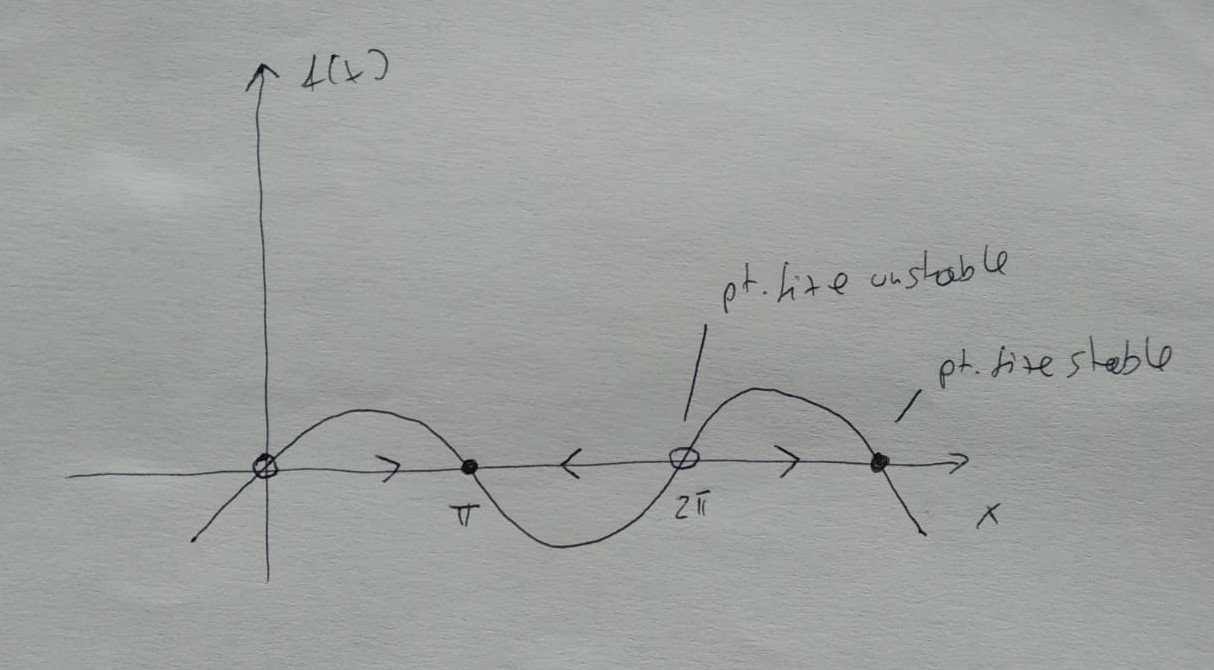 f(x)
pt. fixe unstable
pt. fixe stable
π
2π
x